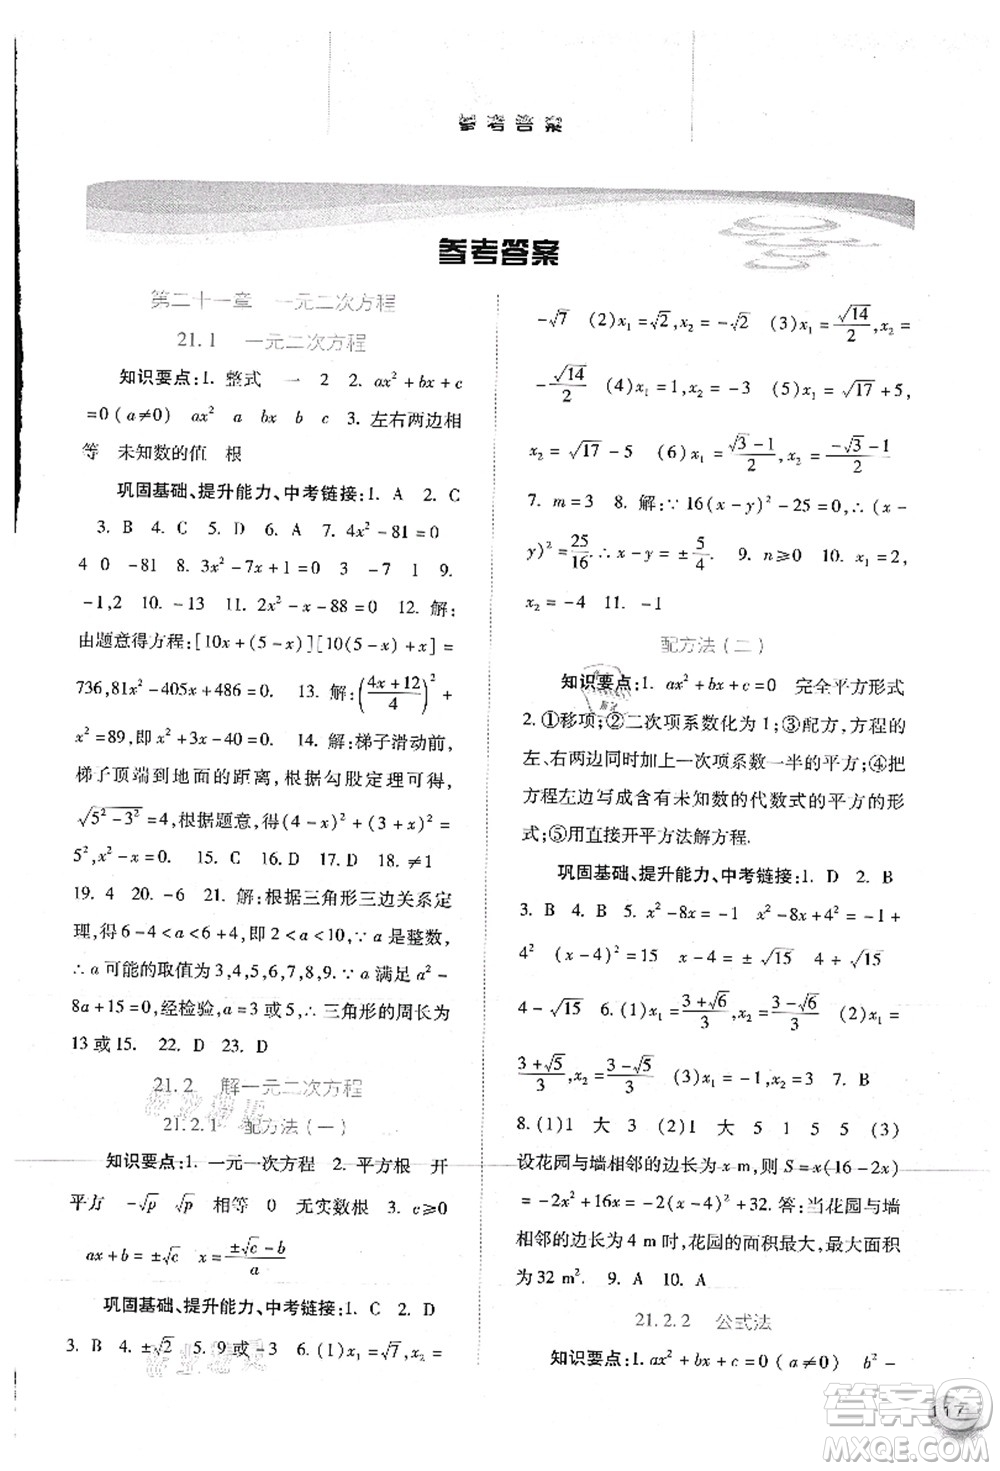 参考答案
参考答案
第二十一章 一元二次方程
21.1 一元二次方程
知识要点:1. 整式 一 2 2. ax²+bx+c
=0(a≠0) ax² a bx b c 3. 左右两边相
等 未知数的值 根
巩固基础、提升能力、中考链接:1. A 2. C
3. B 4. C 5. D 6. A 7. 4x²-81=0
4 0 -81 8. 3x²-5x+1=0 9.
-1,2 10. -13 11. 2x²-x-88=0 12. 解:
由题意得方程:[10x+(5-x)][10(5-x)+x]=
736,81x²-405x+486=0 13. 解:((4x+12)/4)²+
x²=89,即x²+3x-40=0 14. 解:梯子滑动前,
梯子顶端到地面的距离,根据勾股定理可得,
√(5²-3²)=4,根据题意,得(4-x)²+(3+x)²=
5²,x²-x=0 15. C 16. C 17. D 18. ≠1
19. 4 20. -6 21. 解:根据三角形三边关系定
理,得6-4<a<6+4,即2<a<10,∵a是整数,
∴a可能的取值为3,4,5,6,7,8,9.∵a满足a²-
8a+15=0,经检验,a=3或5,∴三角形的周长为
13或15. 22. D 23. D
21.2 解一元二次方程
21.2.1 配方法(一)
知识要点:1. 一元一次方程 2. 平方根 开
平方 -√p √p 相等 0 无实数根 3. c≥0
ax+b=±√c x=(±√c-b)/a
巩固基础、提升能力、中考链接:1. C 2. D
3. B 4. ±√2 5. 9或-3 6. (1)x₁=√7,x₂=
-√7 (2)x₁=√2,x₂=-√2 (3)x₁=√14/2,x₂=
-√14/2 (4)x₁=1,x₂=-3 (5)x₁=√17+5,
x₂=√17-5 (6)x₁=(√3-1)/2,x₂=(-√3-1)/2
7. m=3 8. 解:∵16(x-y)²-25=0,∴(x-
y)²=25/16.∴x-y=±5/4. 9. n≥0 10. x₁=0,
x₂=-4 11. -1
配方法(二)
知识要点:1. ax²+bx+c=0 完全平方形式
2. ①移项;②二次项系数化为1;③配方,方程的
左、右两边同时加上一次项系数一半的平方;④把
方程左边写成含有未知数的代数式的平方的形
式;⑤用直接开平方法解方程.
巩固基础、提升能力、中考链接:1. D 2. B
3. B 4. B 5. x²-8x=-1 x²-8x+4²=-1+
4² (x-4)²=15 x-4=±√15 4+√15 4
-√15 6. 5 7. (1)x₁=(3+√6)/3,x₂=(3-√6)/3 (2)x₁=
(3+√5)/3,x₂=(3-√5)/3 (3)x₁=-1,x₂=4
8. (1)1 大 3 (2)1 大 5 1 5 5 (3)
设花园与墙相邻的边长为x m,则S=x(16-2x)
=-2x²+16x=-2(x-4)²+32. 答:当花园与墙
相邻的边长为4 m时,花园的面积最大,最大面积
为32 m². 9. A 10. A
21.2.2 公式法
知识要点:1. ax²+bx+c=0(a≠0) b²-
117
答案圈
MXQE.COM